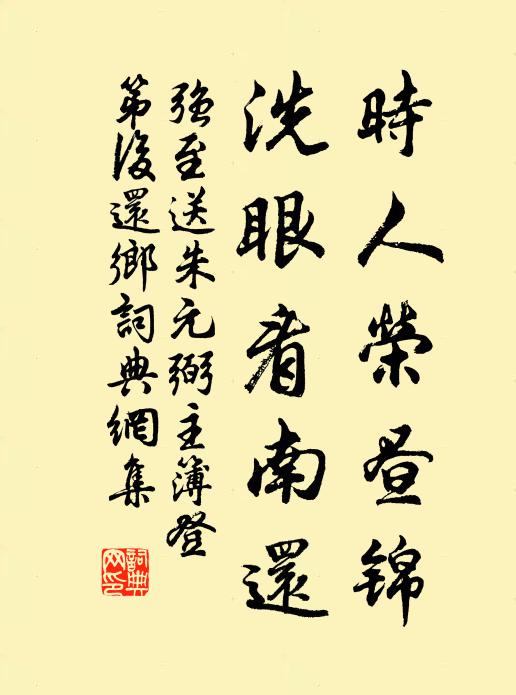 時人榮昼锦
洗眼看南還
強至送朱元弼主簿登
第後還鄉詞典網集
詞典
网印